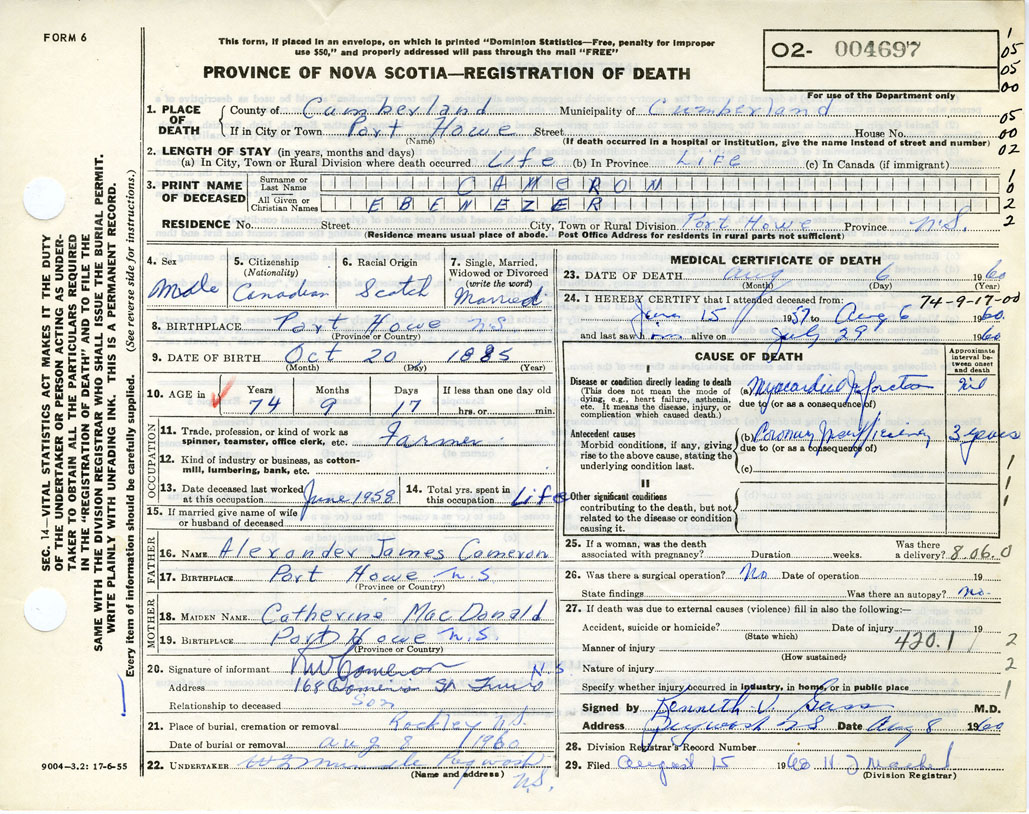 FORM 6
This form, if placed in an envelope, on which is printed "Dominion Statistics—Free, penalty for improper
use $50," and properly addressed will pass through the mail "FREE"
O2- 004697
For use of the Department only
PROVINCE OF NOVA SCOTIA—REGISTRATION OF DEATH
1
05
05
00
05
00
02
1
0
2
2
1. PLACE OF DEATH
County of Cumberland Municipality of Cumberland
If in City or Town Port Howe Street House No.
(Name) (If death occurred in a hospital or institution, give the name instead of street and number)
2. LENGTH OF STAY (in years, months and days)
(a) In City, Town or Rural Division where death occurred Life (b) In Province Life (c) In Canada (if immigrant)
3. PRINT NAME OF DECEASED
Surname or Last Name CAMERON
All Given or Christian Names EBENEZER
RESIDENCE No. Street City, Town or Rural Division Port Howe Province N.S.
(Residence means usual place of abode. Post Office Address for residents in rural parts not sufficient)
4. Sex Male
5. Citizenship (Nationality) Canadian
6. Racial Origin Scotch
7. Single, Married, Widowed or Divorced (write the word) Married
8. BIRTHPLACE Port Howe N.S.
(Province or Country)
9. DATE OF BIRTH Oct 20, 1885
(Month) (Day) (Year)
10. AGE in Years 74 Months 9 Days 17 If less than one day old hrs. or min.
OCCUPATION
11. Trade, profession, or kind of work as spinner, teamster, office clerk, etc. Farmer
12. Kind of industry or business, as cotton-mill, lumbering, bank, etc.
13. Date deceased last worked at this occupation June 1958
14. Total yrs. spent in this occupation Life
15. If married give name of wife or husband of deceased
FATHER
16. NAME Alexander James Cameron
17. BIRTHPLACE Port Howe N.S.
(Province or Country)
MOTHER
18. MAIDEN NAME Catherine MacDonald
19. BIRTHPLACE Port Howe N.S.
(Province or Country)
20. Signature of informant Cameron N S
Address 168 St Truro
Relationship to deceased Son
21. Place of burial, cremation or removal Rockley N.S.
Date of burial or removal Aug 8 1960
22. UNDERTAKER Pugwash
(Name and address) N.S.
MEDICAL CERTIFICATE OF DEATH
23. DATE OF DEATH Aug 6 1960
(Month) (Day) (Year)
24. I HEREBY CERTIFY that I attended deceased from: 74-9-17-00
15 1957 to Aug 6 1960.
and last saw him alive on July 29 1960
CAUSE OF DEATH
Approximate interval between onset and death
I
Disease or condition directly leading to death
(This does not mean the mode of dying, e.g., heart failure, asthenia, etc. It means the disease, injury, or complication which caused death.)
(a) Myocardial Infarction nil
due to (or as a consequence of)
Antecedent causes
Morbid conditions, if any, giving rise to the above cause, stating the underlying condition last.
(b) Coronary Insufficiency 3 years
due to (or as a consequence of)
(c)
1
1
1
II
Other significant conditions
contributing to the death, but not related to the disease or condition causing it.
25. If a woman, was the death associated with pregnancy? Duration weeks. Was there a delivery? 806.0
26. Was there a surgical operation? No Date of operation 19
State findings Was there an autopsy? no.
27. If death was due to external causes (violence) fill in also the following:—
Accident, suicide or homicide? Date of injury 19
(State which)
Manner of injury 420.1 2
(How sustained)
Nature of injury 2
Specify whether injury occurred in industry, in home, or in public place 1
Signed by Kenneth V. Gass M.D.
Address Pugwash NS Date Aug 8 1960
28. Division Registrar's Record Number
29. Filed August 15 1960
(Division Registrar)
SEC. 14—VITAL STATISTICS ACT MAKES IT THE DUTY
OF THE UNDERTAKER OR PERSON ACTING AS UNDER-
TAKER TO OBTAIN ALL THE PARTICULARS REQUIRED
IN THE "REGISTRATION OF DEATH" AND TO FILE THE
SAME WITH THE DIVISION REGISTRAR WHO SHALL ISSUE THE BURIAL PERMIT.
WRITE PLAINLY WITH UNFADING INK. THIS IS A PERMANENT RECORD.
Every item of information should be carefully supplied. (See reverse side for instructions.)
9004-3.2: 17-6-55